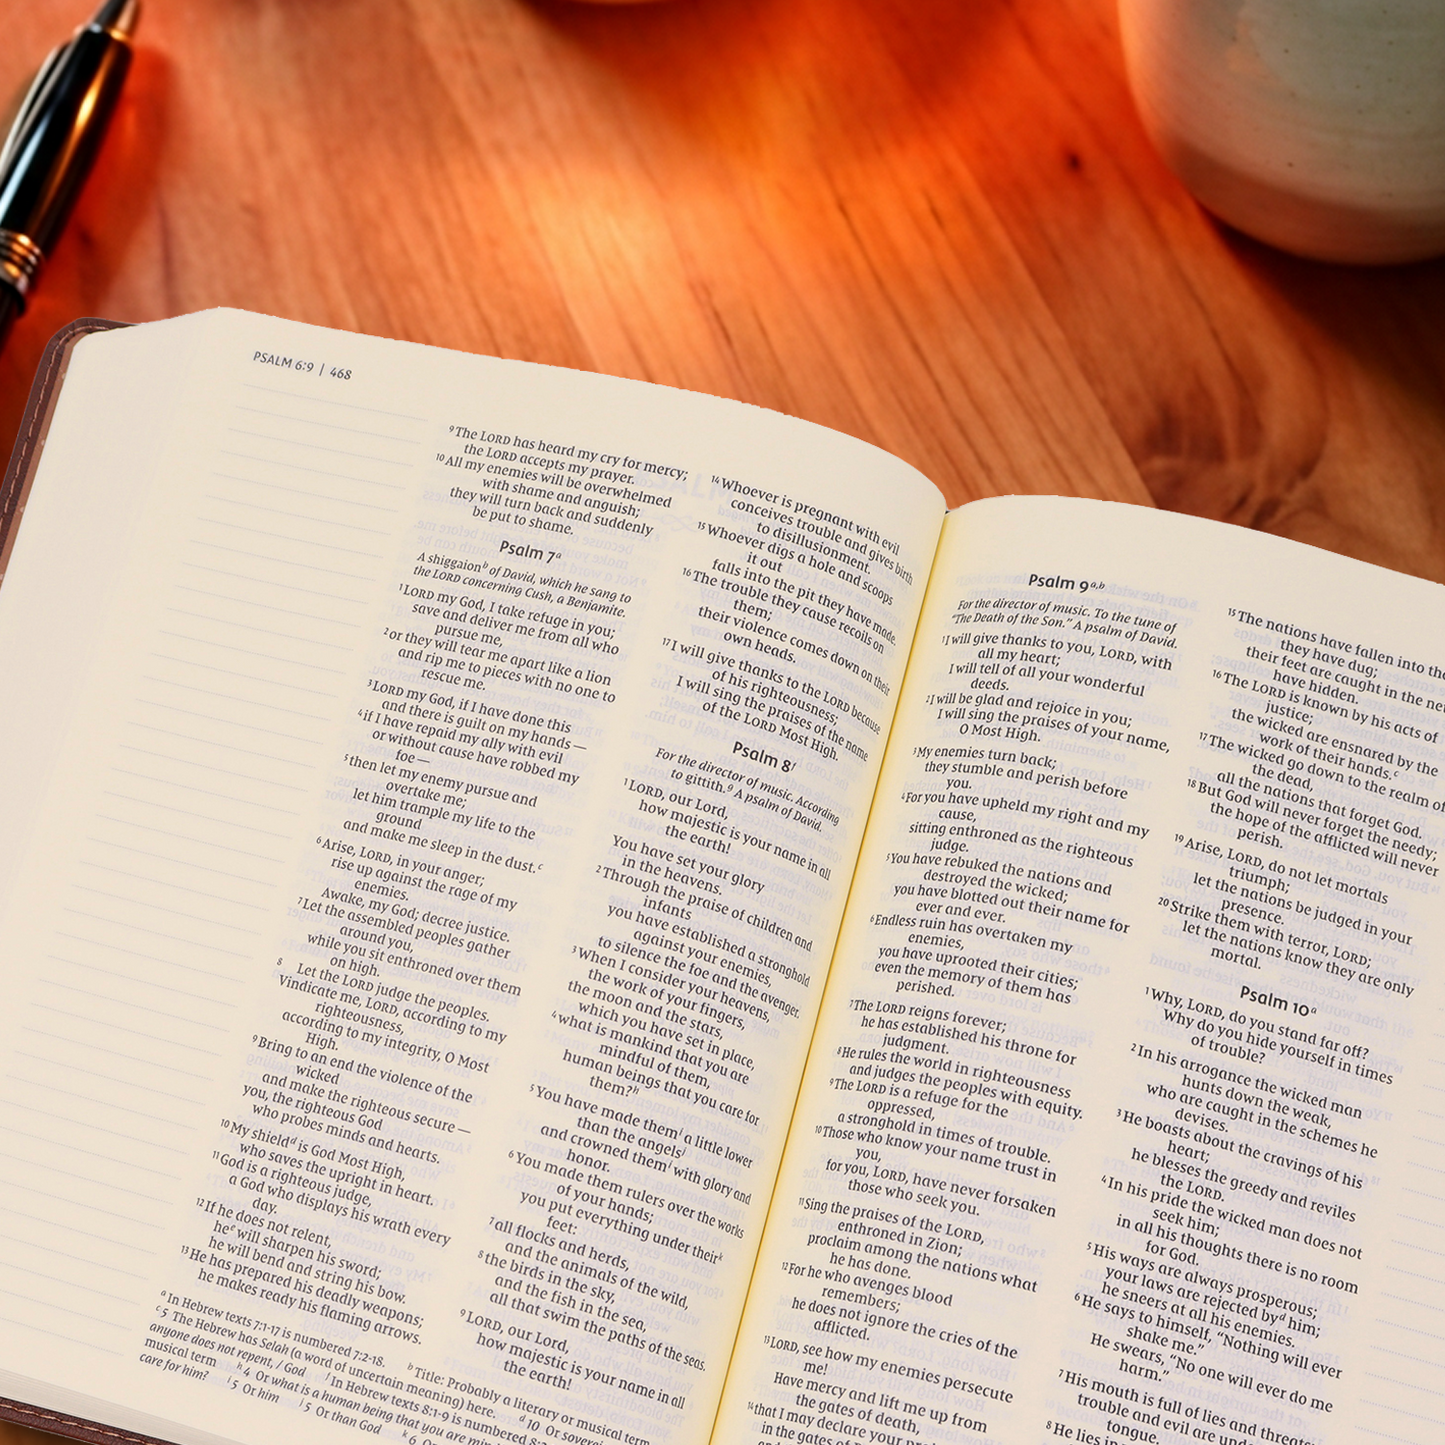 PSALM 6:9 | 468
9 The LORD has heard my cry for mercy;
the LORD accepts my prayer.
10 All my enemies will be overwhelmed
with shame and anguish;
they will turn back and suddenly
be put to shame.
Psalm 7a
A shiggaionb of David, which he sang to
the LORD concerning Cush, a Benjamite.
1 LORD my God, I take refuge in you;
save and deliver me from all who
pursue me,
2 or they will tear me apart like a lion
and rip me to pieces with no one to
rescue me.
3 LORD my God, if I have done this
and there is guilt on my hands —
4 if I have repaid my ally with evil
or without cause have robbed my
foe —
5 then let my enemy pursue and
overtake me;
let him trample my life to the
ground
and make me sleep in the dust.c
6 Arise, LORD, in your anger;
rise up against the rage of my
enemies.
Awake, my God; decree justice.
7 Let the assembled peoples gather
around you,
while you sit enthroned over them
on high.
8 Let the LORD judge the peoples.
Vindicate me, LORD, according to my
righteousness,
according to my integrity, O Most
High.
9 Bring to an end the violence of the
wicked
and make the righteous secure —
you, the righteous God
who probes minds and hearts.
10 My shieldd is God Most High,
who saves the upright in heart.
11 God is a righteous judge,
a God who displays his wrath every
day.
12 If he does not relent,
hee will sharpen his sword;
he will bend and string his bow.
13 He has prepared his deadly weapons;
he makes ready his flaming arrows.
14 Whoever is pregnant with evil
conceives trouble and gives birth
to disillusionment.
15 Whoever digs a hole and scoops
it out
falls into the pit they have made.
16 The trouble they cause recoils on
them;
their violence comes down on their
own heads.
17 I will give thanks to the LORD because
of his righteousness;
I will sing the praises of the name
of the LORD Most High.
Psalm 8f
For the director of music. According
to gittith.g A psalm of David.
1 LORD, our Lord,
how majestic is your name in all
the earth!
You have set your glory
in the heavens.
2 Through the praise of children and
infants
you have established a stronghold
against your enemies,
to silence the foe and the avenger.
3 When I consider your heavens,
the work of your fingers,
the moon and the stars,
which you have set in place,
4 what is mankind that you are
mindful of them,
human beings that you care for
them?h
5 You have made themi a little lower
than the angelsj
and crowned themi with glory and
honor.
6 You made them rulers over the works
of your hands;
you put everything under theirk
feet:
7 all flocks and herds,
and the animals of the wild,
8 the birds in the sky,
and the fish in the sea,
all that swim the paths of the seas.
9 LORD, our Lord,
how majestic is your name in all
the earth!
a In Hebrew texts 7:1-17 is numbered 7:2-18. b Title: Probably a literary or musical term
c 5 The Hebrew has Selah (a word of uncertain meaning) here. d 10 Or sovereign
anyone does not repent, / God f In Hebrew texts 8:1-9 is numbered
musical term h 4 Or what is a human being that you are
care for him? i 5 Or him j 5 Or than God k 6
Psalm 9a,b
For the director of music. To the tune of
“The Death of the Son.” A psalm of David.
1 I will give thanks to you, LORD, with
all my heart;
I will tell of all your wonderful
deeds.
2 I will be glad and rejoice in you;
I will sing the praises of your name,
O Most High.
3 My enemies turn back;
they stumble and perish before
you.
4 For you have upheld my right and my
cause,
sitting enthroned as the righteous
judge.
5 You have rebuked the nations and
destroyed the wicked;
you have blotted out their name for
ever and ever.
6 Endless ruin has overtaken my
enemies,
you have uprooted their cities;
even the memory of them has
perished.
7 The LORD reigns forever;
he has established his throne for
judgment.
8 He rules the world in righteousness
and judges the peoples with equity.
9 The LORD is a refuge for the
oppressed,
a stronghold in times of trouble.
10 Those who know your name trust in
you,
for you, LORD, have never forsaken
those who seek you.
11 Sing the praises of the LORD,
enthroned in Zion;
proclaim among the nations what
he has done.
12 For he who avenges blood
remembers;
he does not ignore the cries of the
afflicted.
13 LORD, see how my enemies persecute
me!
Have mercy and lift me up from
the gates of death,
14 that I may declare your
in the gates of
15 The nations have fallen into the
they have dug;
their feet are caught in the net
have hidden.
16 The LORD is known by his acts of
justice;
the wicked are ensnared by the
work of their hands.c
17 The wicked go down to the realm of
the dead,
all the nations that forget God.
18 But God will never forget the needy;
the hope of the afflicted will never
perish.
19 Arise, LORD, do not let mortals
triumph;
let the nations be judged in your
presence.
20 Strike them with terror, LORD;
let the nations know they are only
mortal.
Psalm 10a
1 Why, LORD, do you stand far off?
Why do you hide yourself in times
of trouble?
2 In his arrogance the wicked man
hunts down the weak,
who are caught in the schemes he
devises.
3 He boasts about the cravings of his
heart;
he blesses the greedy and reviles
the LORD.
4 In his pride the wicked man does not
seek him;
in all his thoughts there is no room
for God.
5 His ways are always prosperous;
your laws are rejected byd him;
he sneers at all his enemies.
6 He says to himself, “Nothing will ever
shake me.”
He swears, “No one will ever do me
harm.”
7 His mouth is full of lies and threats;
trouble and evil are
tongue.
8 He lies in